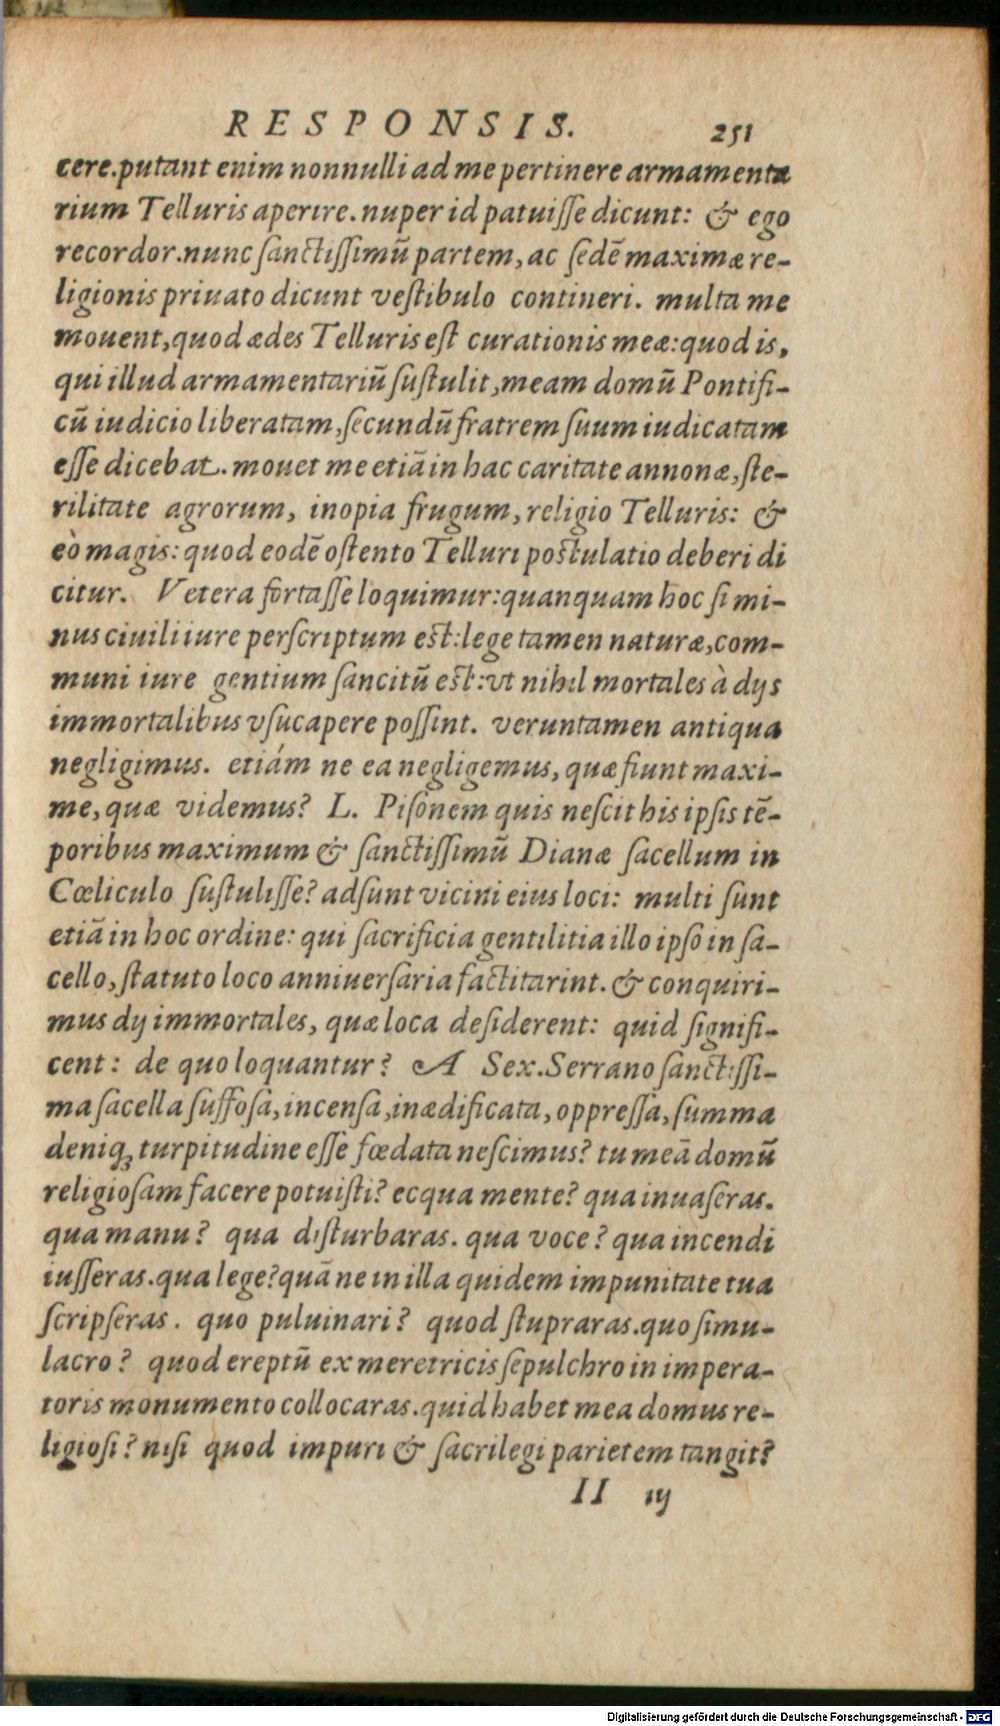 RESPONSIS. 251
cere.putant enim nonnulli ad me pertinere armamenta
rium Telluris aperire.nuper id patuiſſe dicunt: & ego
recordor.nunc ſanctiſſimū partem, ac ſedē maximæ re-
ligionis priuato dicunt veſtibulo contineri. multa me
mouent,quod ædes Telluris eſt curationis meæ:quod is,
qui illud armamentariū ſuſtulit,meam domū Pontifi-
cū iudicio liberatam,ſecundū fratrem ſuum iudicatam
eſſe dicebat. mouet me etiā in hac caritate annonæ,ſte-
rilitate agrorum, inopia frugum,religio Telluris: &
eò magis: quod eodē oſtento Telluri poſtulatio deberi di
citur. Vetera fortaſſe loquimur:quanquam hoc ſi mi-
nus ciuili iure perſcriptum eſt:lege tamen naturæ,com-
muni iure gentium ſancitū eſt:vt nihil mortales à dijs
immortalibus vſucapere poſſint. veruntamen antiqua
negligimus. etiám ne ea negligemus, quæ fiunt maxi-
me,quæ videmus? L. Piſonem quis neſcit his ipſis tē-
poribus maximum & ſanctiſſimū Dianæ ſacellum in
Cœliculo ſuſtuliſſe? adſunt vicini eius loci: multi ſunt
etiā in hoc ordine: qui ſacrificia gentilitia illo ipſo in ſa-
cello,ſtatuto loco anniuerſaria factitarint. & conquiri-
mus dij immortales, quæ loca deſiderent: quid ſignifi-
cent: de quo loquantur? A Sex.Serrano ſanctiſſi-
ma ſacella ſuffoſa,incenſa,inædificata,oppreſſa,ſumma
deniq; turpitudine eſſe fœdata neſcimus? tu meā domū
religioſam facere potuiſti? ecqua mente? qua inuaſeras.
qua manu? qua diſturbaras. qua voce? qua incendi
iuſſeras.qua lege?quā ne in illa quidem impunitate tua
ſcripſeras. quo puluinari? quod ſtupraras.quo ſimu-
lacro? quod ereptū ex meretricis ſepulchro in impera-
toris monumento collocaras.quid habet mea domus re-
ligioſi? niſi quod impuri & ſacrilegi parietem tangit?
II iij
Digitalisierung gefördert durch die Deutsche Forschungsgemeinschaft - DFG